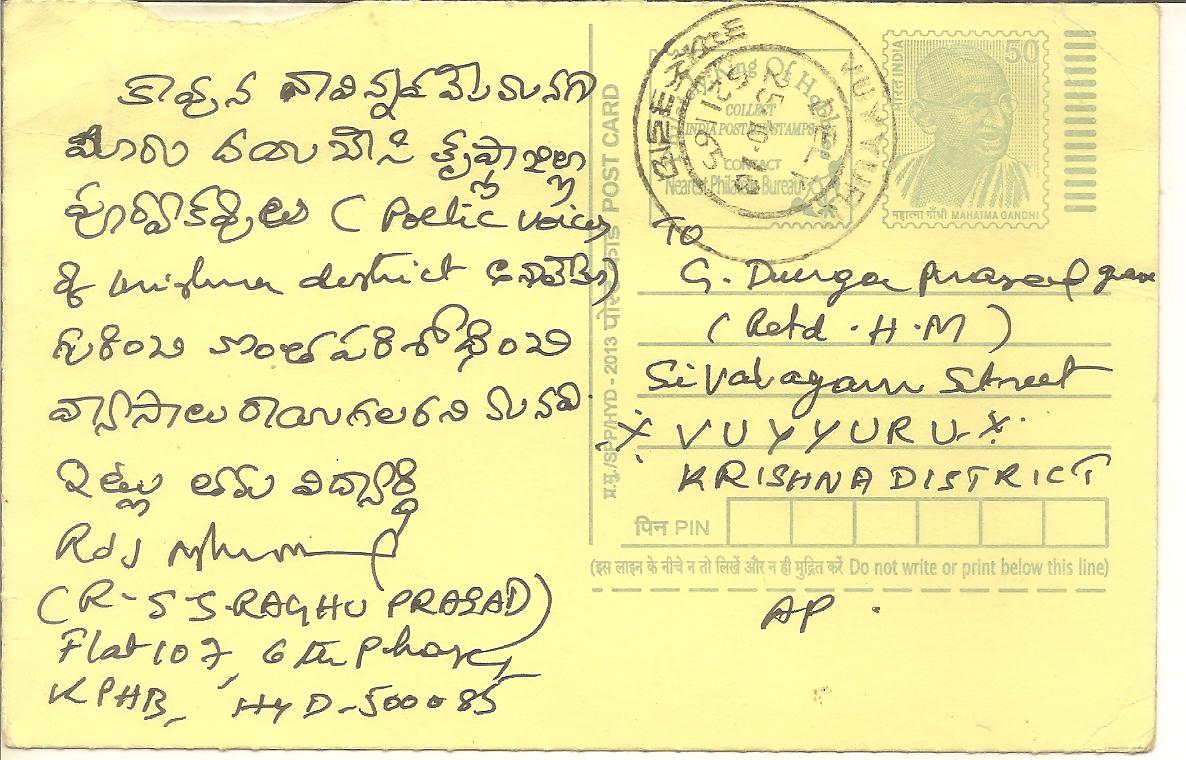 కావున వారిన్నడమే మనగా
మీరు దయచేసి కృష్ణాజిల్లా
పూర్వకవులు ( Poetic voices
of Krishna district అనవచ్చు)
గురించి కొంత పరిశోధించి
వ్యాసాలు రాయగలరని మనవి.
ఇట్లు తమ విద్యార్థి
(R-S S-RAGHU PRASAD)
Flat 107, 6th Phase,
KPHB, HYD-500085
प्र.मु./SPP/HYD - 2013 पोस्ट कार्ड POST CARD
King Of Hobbies
COLLECT
INDIA POSTAGE STAMPS
CONTACT
Nearest Philatelic Bureau
VUYYUR
521165
भारत INDIA
50
महात्मा गाँधी MAHATMA GANDHI
TO
G. Durga Prasad garu
(Retd. H.M)
Sivalayam Street
VUYYURU
KRISHNA DISTRICT
पिन PIN
(इस लाइन के नीचे न तो लिखें और न ही मुद्रित करें Do not write or print below this line)
AP.